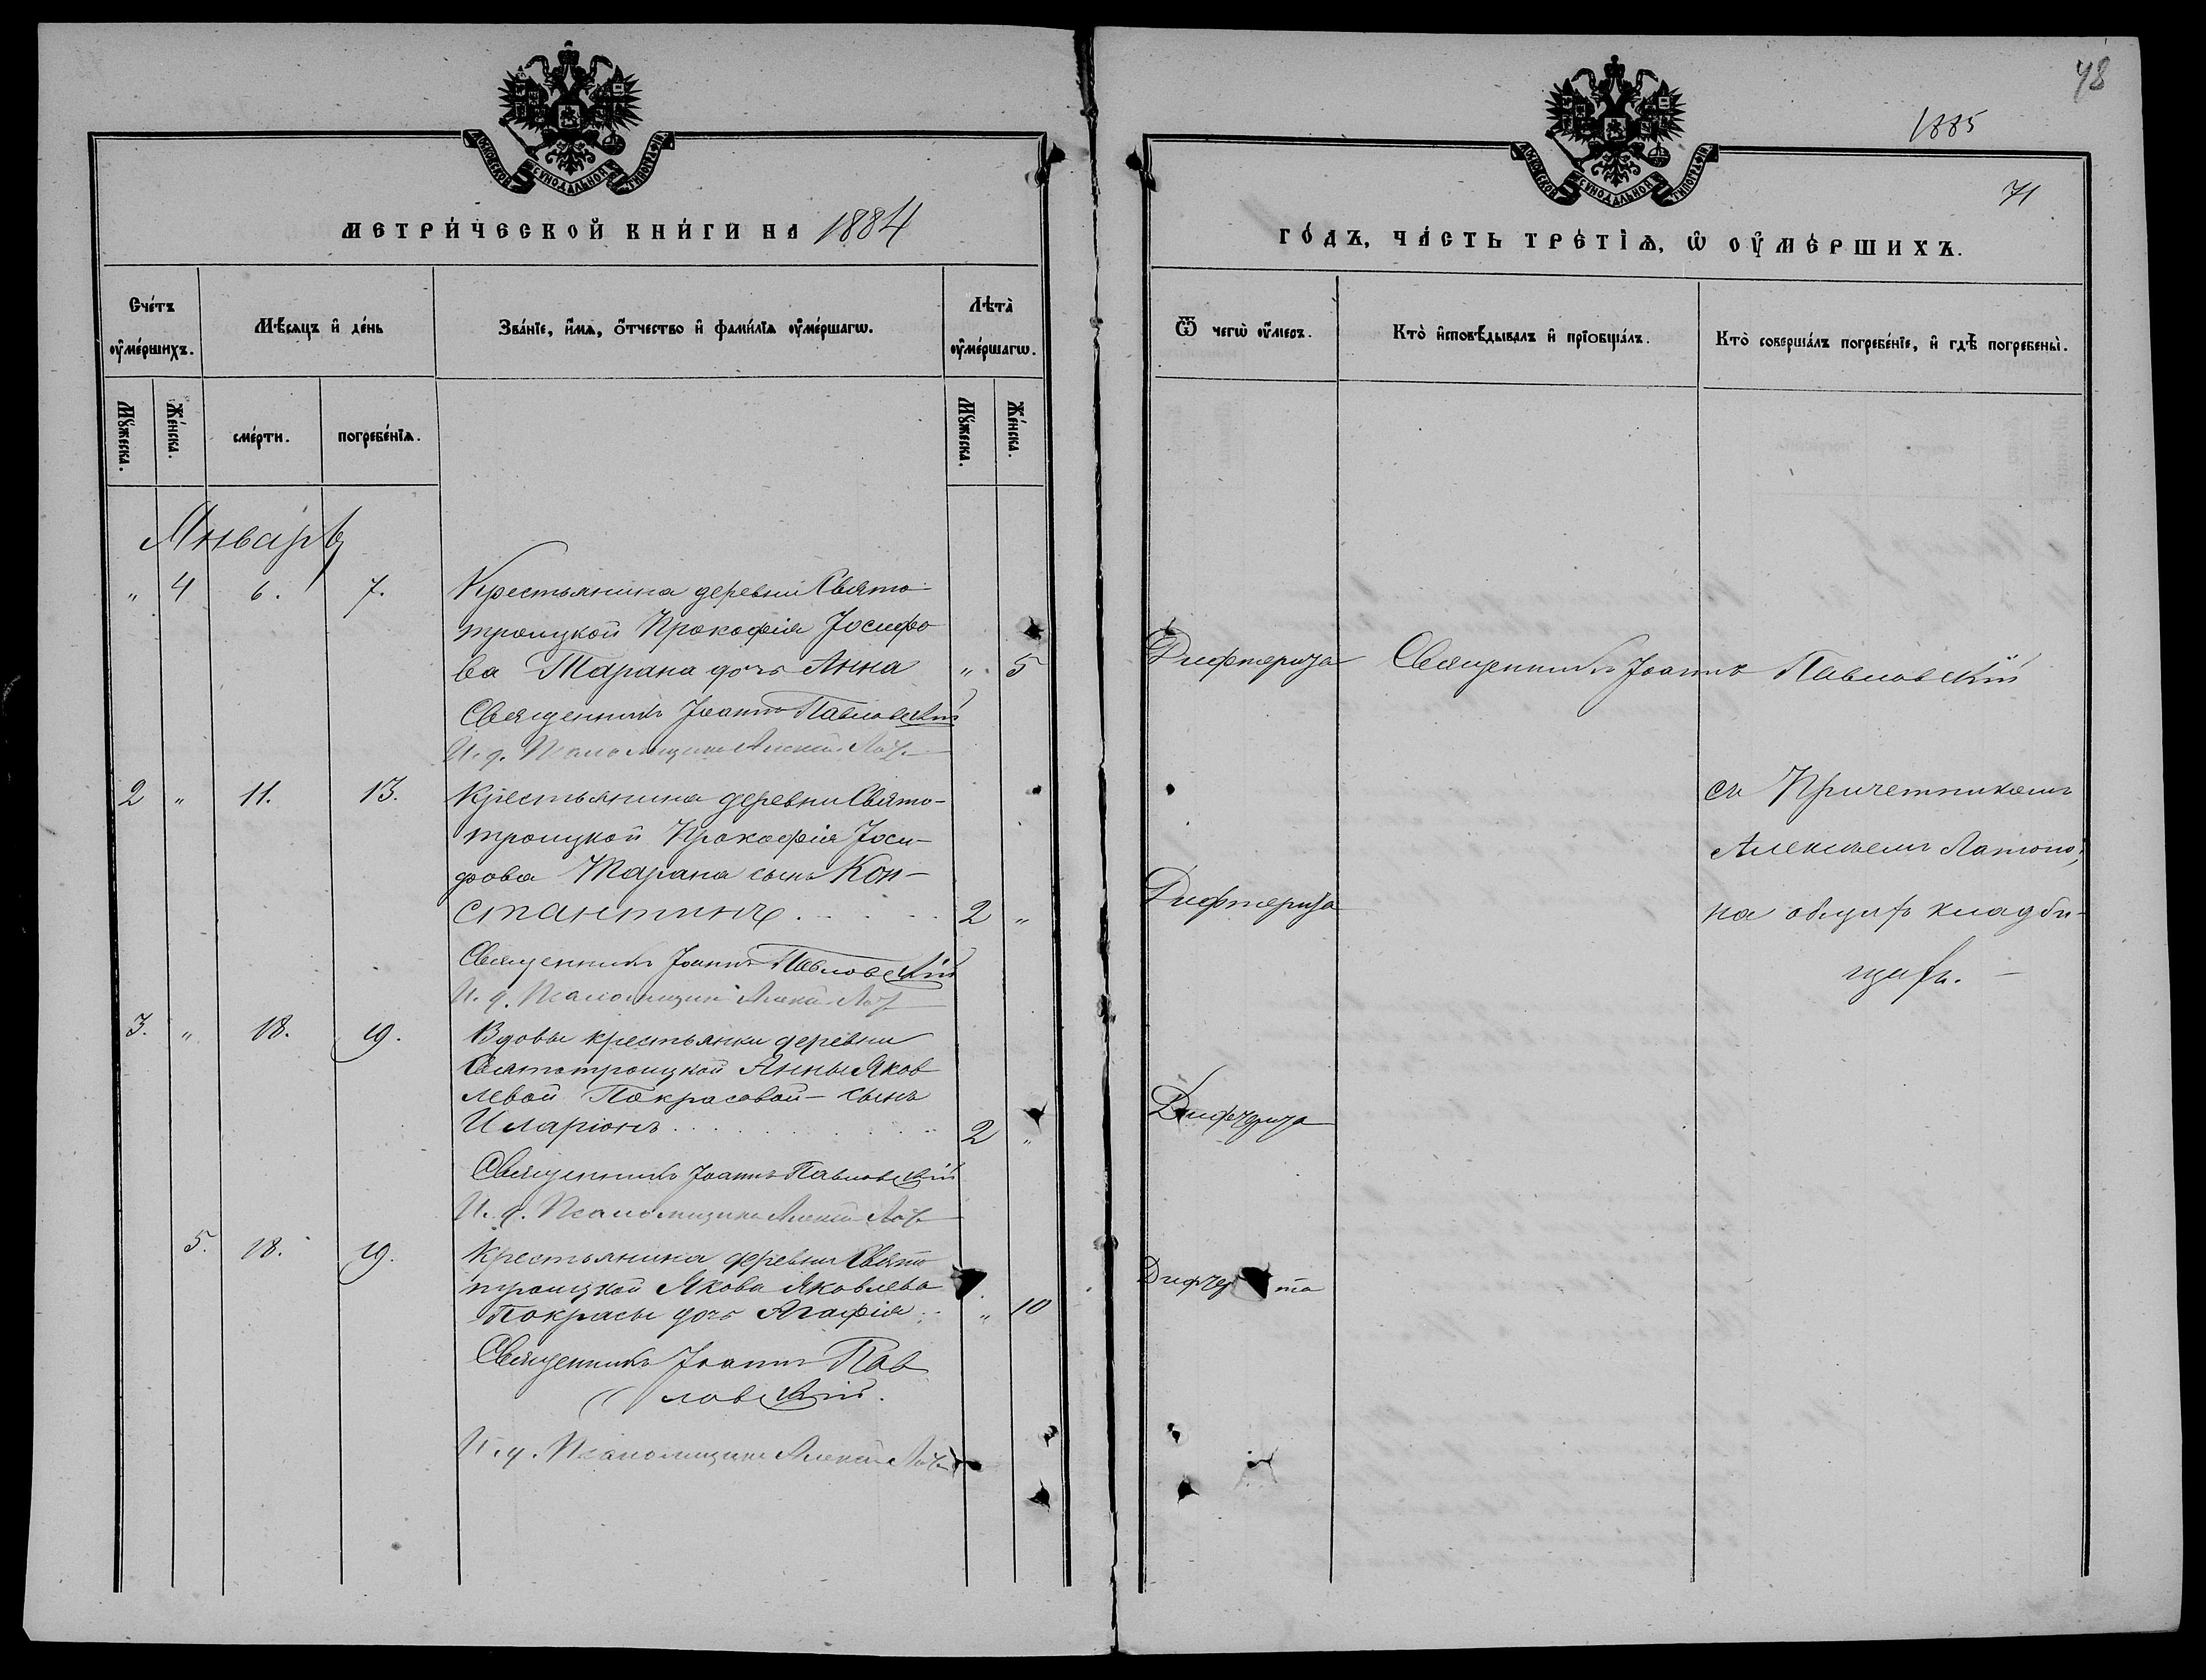 48
1885
71
МОСКОВСКОЙ СѴНОДАЛЬНОЙ ТИПОГРАФІИ
МЕТРИ́ЧЕСКОЙ КНИ́ГИ НА 1884
Сче́тъ ᲂу҆ме́ршихъ.
Мѣ́сяцъ и҆ де́нь
Зва́нїе, и҆́мѧ, ѻ҆́тчество и҆ фамилїѧ ᲂу҆ме́ршагѡ.
Лѣта̀ ᲂу҆ме́ршагѡ.
Мꙋ́жеска.
Же́нска.
сме́рти.
погребе́нїѧ.
Мꙋ́жеска.
Же́нска.
Январь
" 4 6. 7. Крестьянина деревни Свято
троицкой Прокофія Іосифо
ва Тарана дочь Анна " 5
Священникъ Іоаннъ Павловскій
И. д. Псаломщика Алексѣй
2 " 11. 13. Крестьянина деревни Свято-
троицкой Прокофія Іоси-
фова Тарана сынъ Кон-
стантинъ 2 "
Священникъ Іоаннъ Павловскій
И. д. Псаломщика Алексѣй
3. " 18. 19. Вдовы крестьянки деревни
Святотроицкой Анны Яков
левой Покрасовой - сынъ
Иларіонъ 2 "
Священникъ Іоаннъ Павловскій
И. д. Псаломщика Алексѣй
5. 18. 19. Крестьянина деревни Свято
троицкой Якова Яковлева
Покрасы дочь Агафія " 10
Священникъ Іоаннъ Пав
ловскій.
И. д. Псаломщика Алексѣй
МОСКОВСКОЙ СѴНОДАЛЬНОЙ ТИПОГРАФІИ
ГО́ДЪ, ЧА́СТЬ ТРЕ́ТЇѦ, Ѡ҆ ОУ҆МЕ́РШИХЪ.
Ѿ чегѡ̀ ᲂу҆́меръ.
Кто̀ и҆сповѣ́дывалъ и҆ прїобща́лъ.
Кто̀ соверша́лъ погребе́нїе, и҆ гдѣ̀ погребены̀.
Дифтерита Священникъ Іоаннъ Павловскій
съ Причетникомъ
Алексѣемъ
Дифтерита на общемъ кладби-
щѣ. -
Дифтерита
Дифтер та